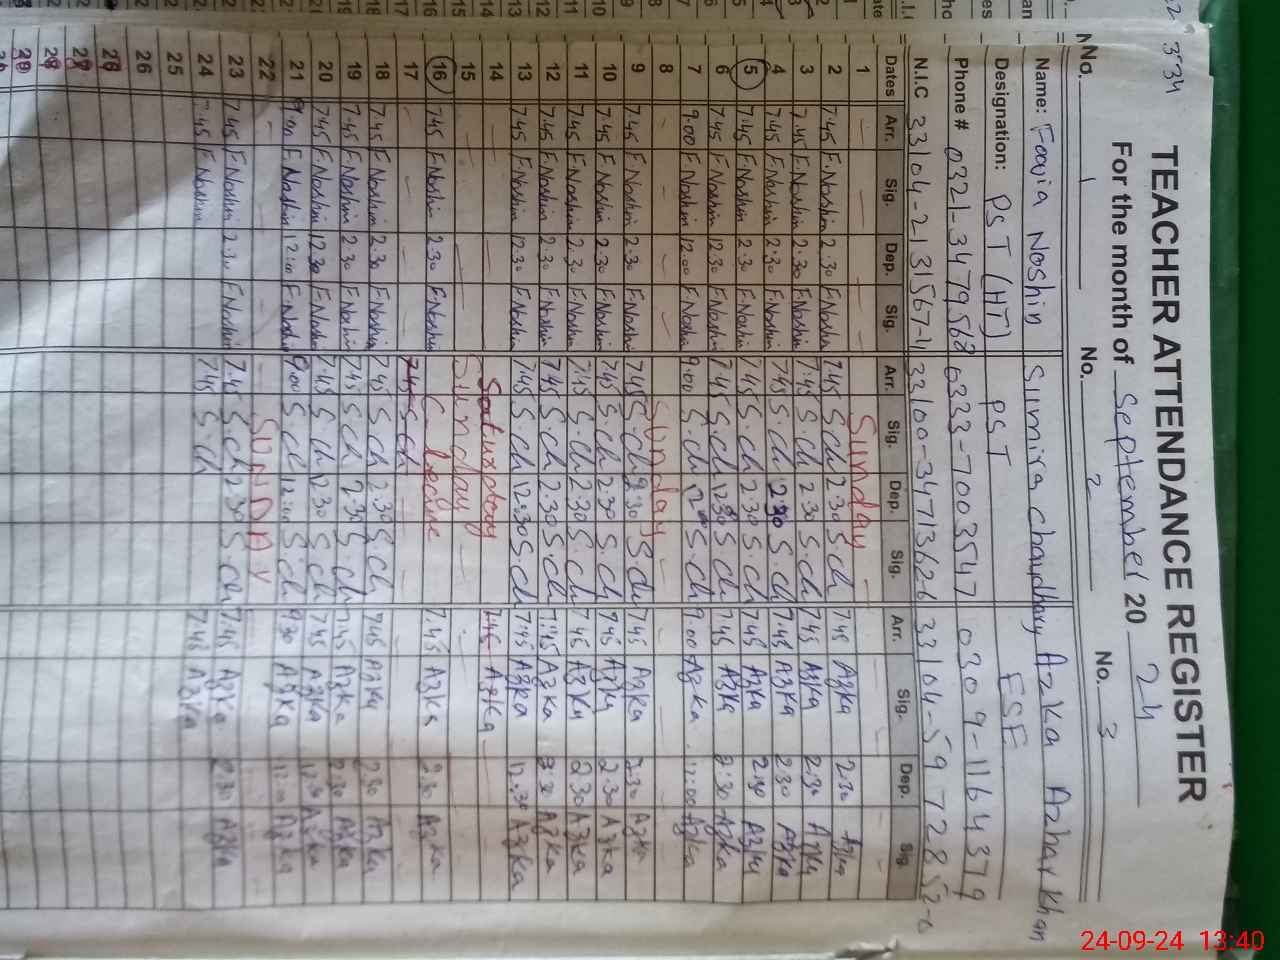 3534
TEACHER ATTENDANCE REGISTER
For the month of September 20 24
No. 1 No. 2 No. 3
Name: Fozia Noshin Sumira chaudhary Azka Azhar Khan
Designation: PST (HT) PST ESE
Phone # 0321-3479568 0333-7003547 0309-1164379
N.I.C 33104-2131567-4 33100-3471362-6 33104-5972852-0
Dates Arr. Sig. Dep. Sig. Arr. Sig. Dep. Sig. Arr. Sig. Dep. Sig.
1 Sunday
2 7:45 F.Noshin 2.30 F.Noshin 7.45 S.Ch 2.30 S.Ch 7.45 Azka 2.30 Azka
3 7.45 F.Noshin 2.30 F.Noshin 7.45 S.Ch 2.30 S.Ch 7.45 Azka 2.30 Azka
4 7.45 F.Noshin 2.30 F.Noshin 7.45 S.Ch 2.30 S.Ch 7.45 Azka 2.30 Azka
5 7.45 F.Noshin 2.30 F.Noshin 7.45 S.Ch 2.30 S.Ch 7.45 Azka 2.30 Azka
6 7.45 F.Noshin 12.30 F.Noshin 7.45 S.Ch 12.30 S.Ch 7.45 Azka Azka
7 9.00 F.Noshin 12.00 F.Noshin 9.00 S.Ch S.Ch 9.00 Azka 12:00 Azka
8 Sunday
9 7.45 F.Noshin 2.30 F.Noshin 7.45 S.Ch 2.30 S.Ch 7.45 Azka 2.30 Azka
10 7.45 F.Noshin 2.30 F.Noshin 7.45 S.Ch 2.30 S.Ch 7.45 Azka 2.30 Azka
11 7.45 F.Noshin 2.30 F.Noshin 7.45 S.Ch 2.30 S.Ch 7.45 Azka 2.30 Azka
12 7.45 F.Noshin 2.30 F.Noshin 7.45 S.Ch 2.30 S.Ch 7.45 Azka 2.30 Azka
13 7.45 F.Noshin 12.30 F.Noshin 7.45 S.Ch 12.30 S.Ch 7.45 Azka 12.30 Azka
14 Saturday 7.45 Azka
15 Sunday
16 7.45 F.Noshin 2.30 F.Noshin 7.45 Azka 2.30 Azka
17 7.45 S.Ch
18 7.45 F.Noshin 2.30 F.Noshin 7.45 S.Ch 2.30 S.Ch 7.45 Azka 2.30 Azka
19 7.45 F.Noshin 2.30 F.Noshin 7.45 S.Ch 2.30 S.Ch 7.45 Azka 2.30 Azka
20 7.45 F.Noshin 12.30 F.Noshin 7.45 S.Ch 12.30 S.Ch 7.45 Azka 12.30 Azka
21 9.00 F.Noshin 12:00 F.Noshin 9.00 S.Ch 12:00 S.Ch 9.30 Azka 12:00 Azka
22 SUNDAY
23 7.45 F.Noshin 2.30 F.Noshin 7.45 S.Ch 2.30 S.Ch 7.45 Azka 2.30 Azka
24 7.45 F.Noshin 7.45 S.Ch 7.45 Azka
25
26
26
27
28
29
24-09-24 13:40